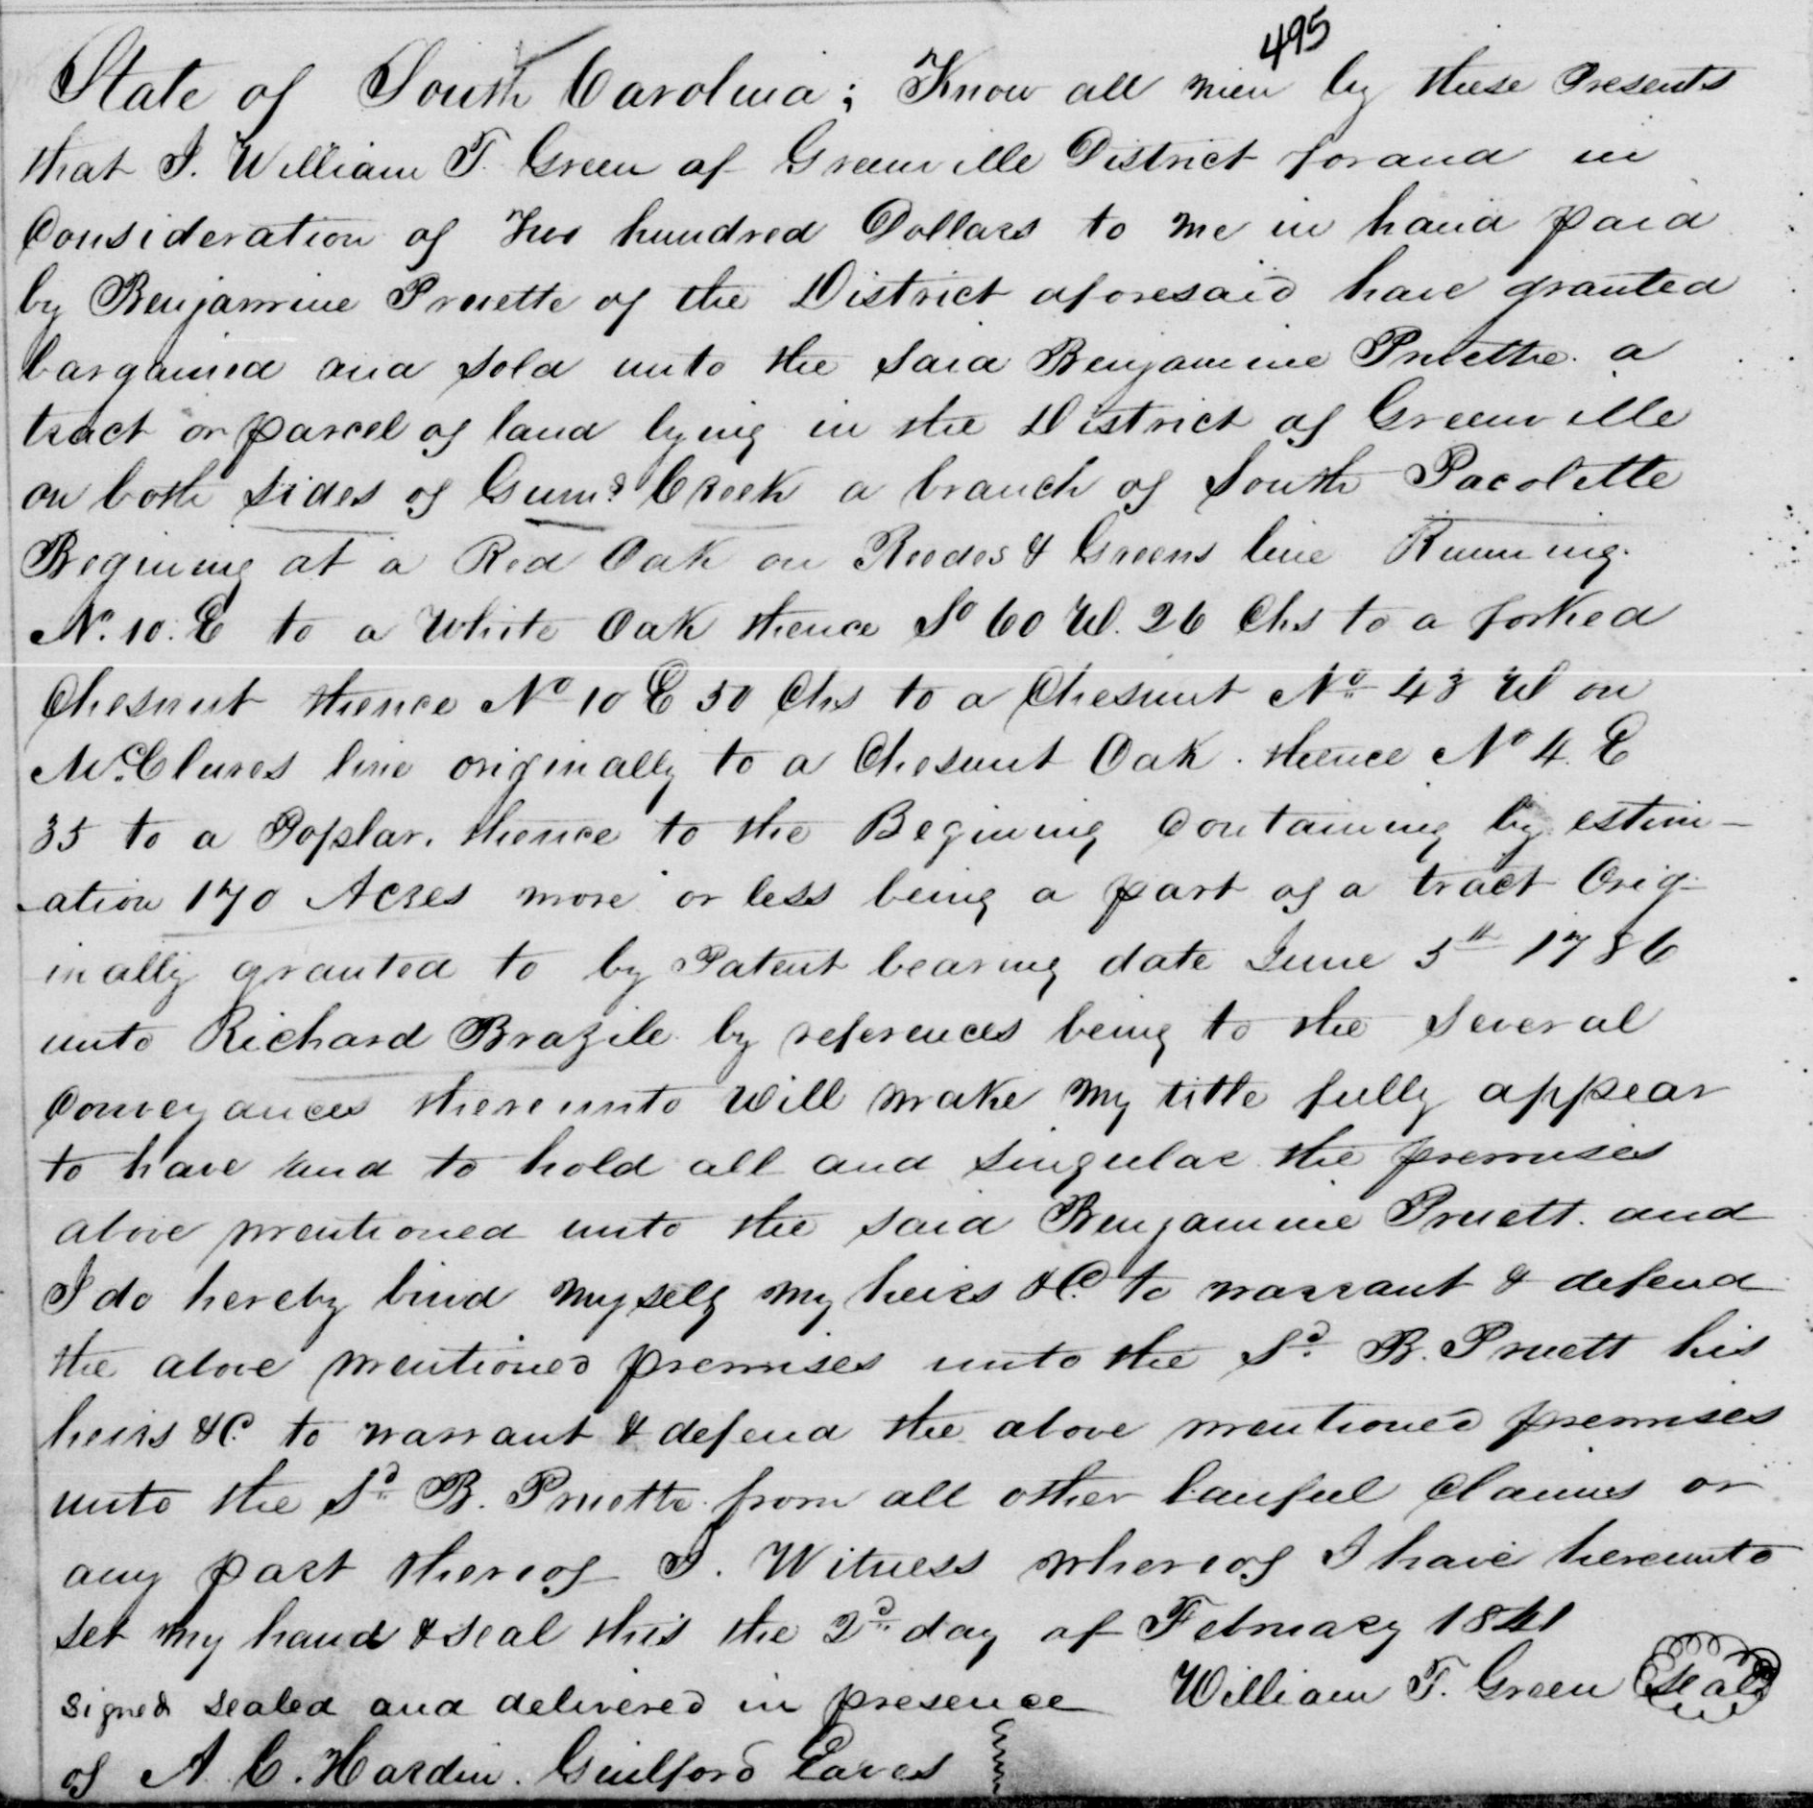 495
State of South Carolina; Know all men by these Presents
that I. William T. Green of Greenville District for and in
Consideration of Two hundred Dollars to me in hand paid
by Benjamine Pruette of the District aforesaid have granted
bargained and sold unto the said Benjamine Pruette. a
tract or parcel of land lying in the District of Greenville
on both sides of Gums Creek a branch of South Pacolette
Begining at a Red Oak on Reedes & Greens line Running.
No. 10. E to a White Oak thence So 60 W. 26 Chs to a forked
Chesnut thence No 10 E 50 Chs to a Chesnut No 43 W on
McClures line originally to a Chesnut Oak. thence No 4. E
35 to a Poplar. thence to the Begining Containing by estim-
-ation 170 Acres more or less being a part of a tract Orig-
inally granted to by Patent bearing date June 5th 1786
unto Richard Brazile by references being to the several
Conveyances thereunto will make my title fully appear
to have and to hold all and singular the premises
above mentioned unto the said Benjamine Pruett. and
I do hereby bind myself my heirs &C. to warrant & defend
the above mentioned premises unto the Sd. B. Pruett his
heirs &C. to warrant & defend the above mentioned premises
unto the Sd. B. Pruette from all other lawful claims or
any part thereof I. Witness whereof I have hereunto
set my hand & seal this the 2d. day of February 1841
signed sealed and delivered in presence William T. Green Seal
of A. C. Hardin. Guilford Eaves